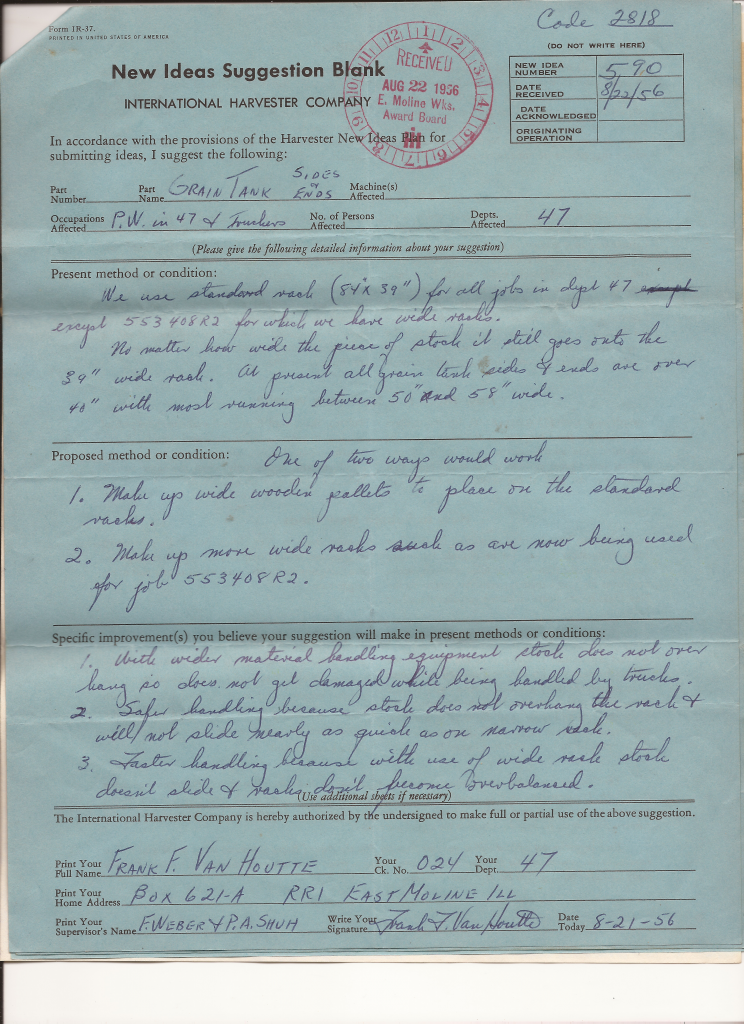 Form 1R-37.
PRINTED IN UNITED STATES OF AMERICA
Code 2818
(DO NOT WRITE HERE)
New Ideas Suggestion Blank
INTERNATIONAL HARVESTER COMPANY
12 1 2 3 4 5 6 7 8 9 10 11
RECEIVED
AUG 22 1956
E. Moline Wks.
Award Board
NEW IDEA NUMBER 590
DATE RECEIVED 8/22/56
DATE ACKNOWLEDGED
ORIGINATING OPERATION
In accordance with the provisions of the Harvester New Ideas Plan for
submitting ideas, I suggest the following:
Part Number Part Name GRAIN TANK SIDES & ENDS Machine(s) Affected
Occupations Affected P.W. in 47 & Truckers No. of Persons Affected Depts. Affected 47
(Please give the following detailed information about your suggestion)
Present method or condition:
We use standard rack (84"x 39") for all jobs in dept 47 except
except 553408R2 for which we have wide racks.
No matter how wide the piece of stock it still goes onto the
39" wide rack. At present all grain tank sides & ends are over
40" with most running between 50" and 58" wide.
Proposed method or condition: One of two ways would work
1. Make up wide wooden pallets to place on the standard
racks.
2. Make up more wide racks such as are now being used
for job 553408R2.
Specific improvement(s) you believe your suggestion will make in present methods or conditions:
1. With wider material handling equipment stock does not over
hang so does not get damaged while being handled by trucks.
2. Safer handling because stock does not overhang the rack &
will not slide nearly as quick as on narrow rack.
3. Faster handling because with use of wide rack stock
doesn't slide & racks don't become overbalanced.
(Use additional sheets if necessary)
The International Harvester Company is hereby authorized by the undersigned to make full or partial use of the above suggestion.
Print Your Full Name FRANK F. VAN HOUTTE Your Ck. No. 024 Your Dept. 47
Print Your Home Address BOX 621-A RR1 EAST MOLINE ILL
Print Your Supervisor's Name F. WEBER & P.A. SHUH Write Your Signature Frank F. Van Houtte Date Today 8-21-56